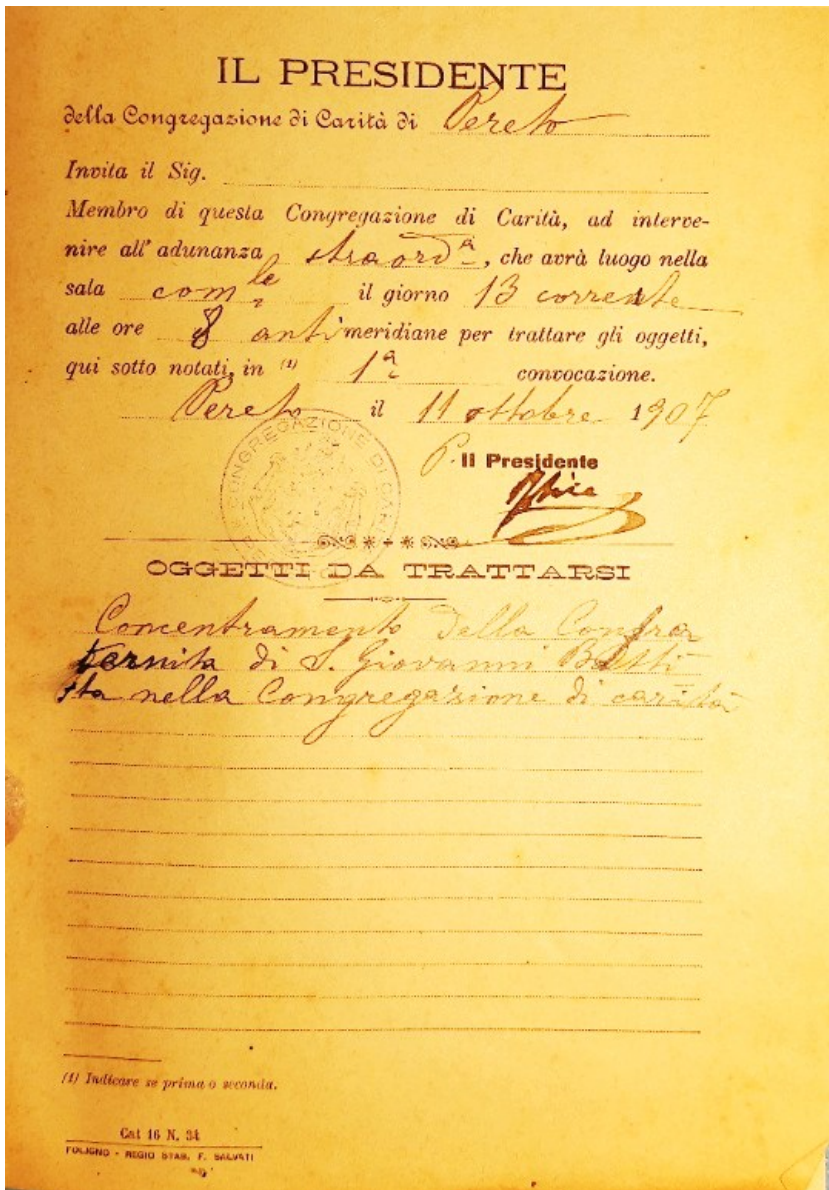 IL PRESIDENTE
della Congregazione di Carità di Pereto
Invita il Sig.
Membro di questa Congregazione di Carità, ad interve-
nire all'adunanza straord.ª, che avrà luogo nella
sala com.le il giorno 13 corrente
alle ore 8 antimeridiane per trattare gli oggetti,
qui sotto notati, in (1) 1ª convocazione.
Pereto il 11 ottobre 1907
P. Il Presidente
CONGREGAZIONE DI CARI
OGGETTI DA TRATTARSI
Concentramento della Confra
ternita di S. Giovanni Batti
sta nella Congregazione di carità
(1) Indicare se prima o seconda.
Cat 16 N. 34
FOLIGNO - REGIO STAB. F. SALVATI